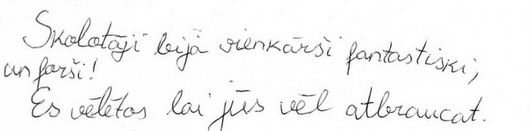 Skolotāji bijā vienkārši fantastiski,
un forši!
Es vēlētos lai jūs vēl atbraucat.